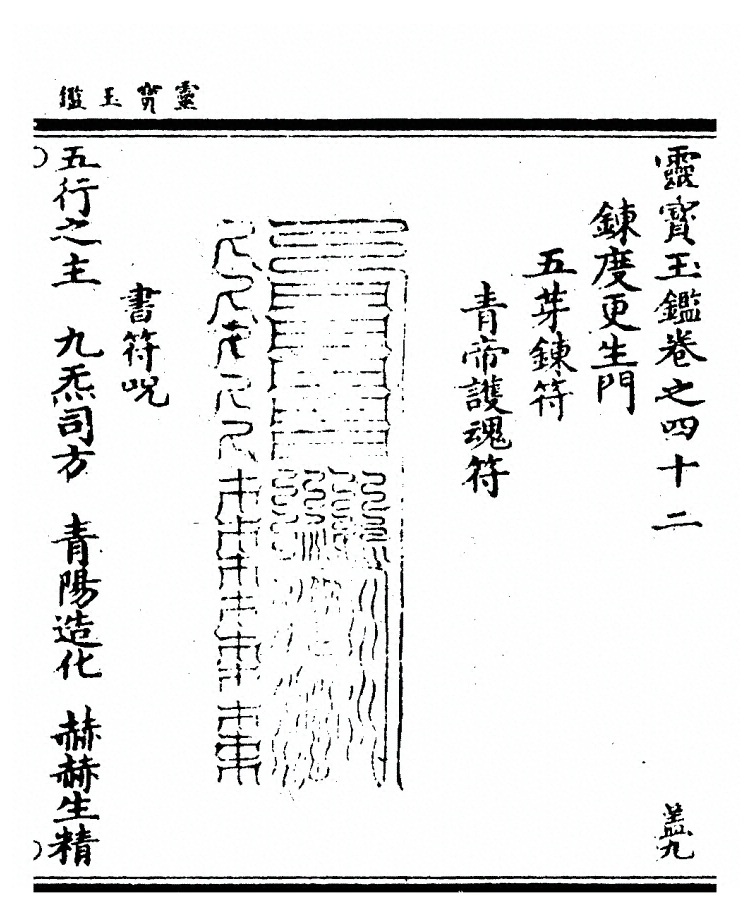 靈寳玉鑑
靈寳玉鑑卷之四十二
盖九
鍊度更生門
五芽鍊符
青帝護魂符
書符呪
五行之主　九炁司方　青陽造化　赫赫生精